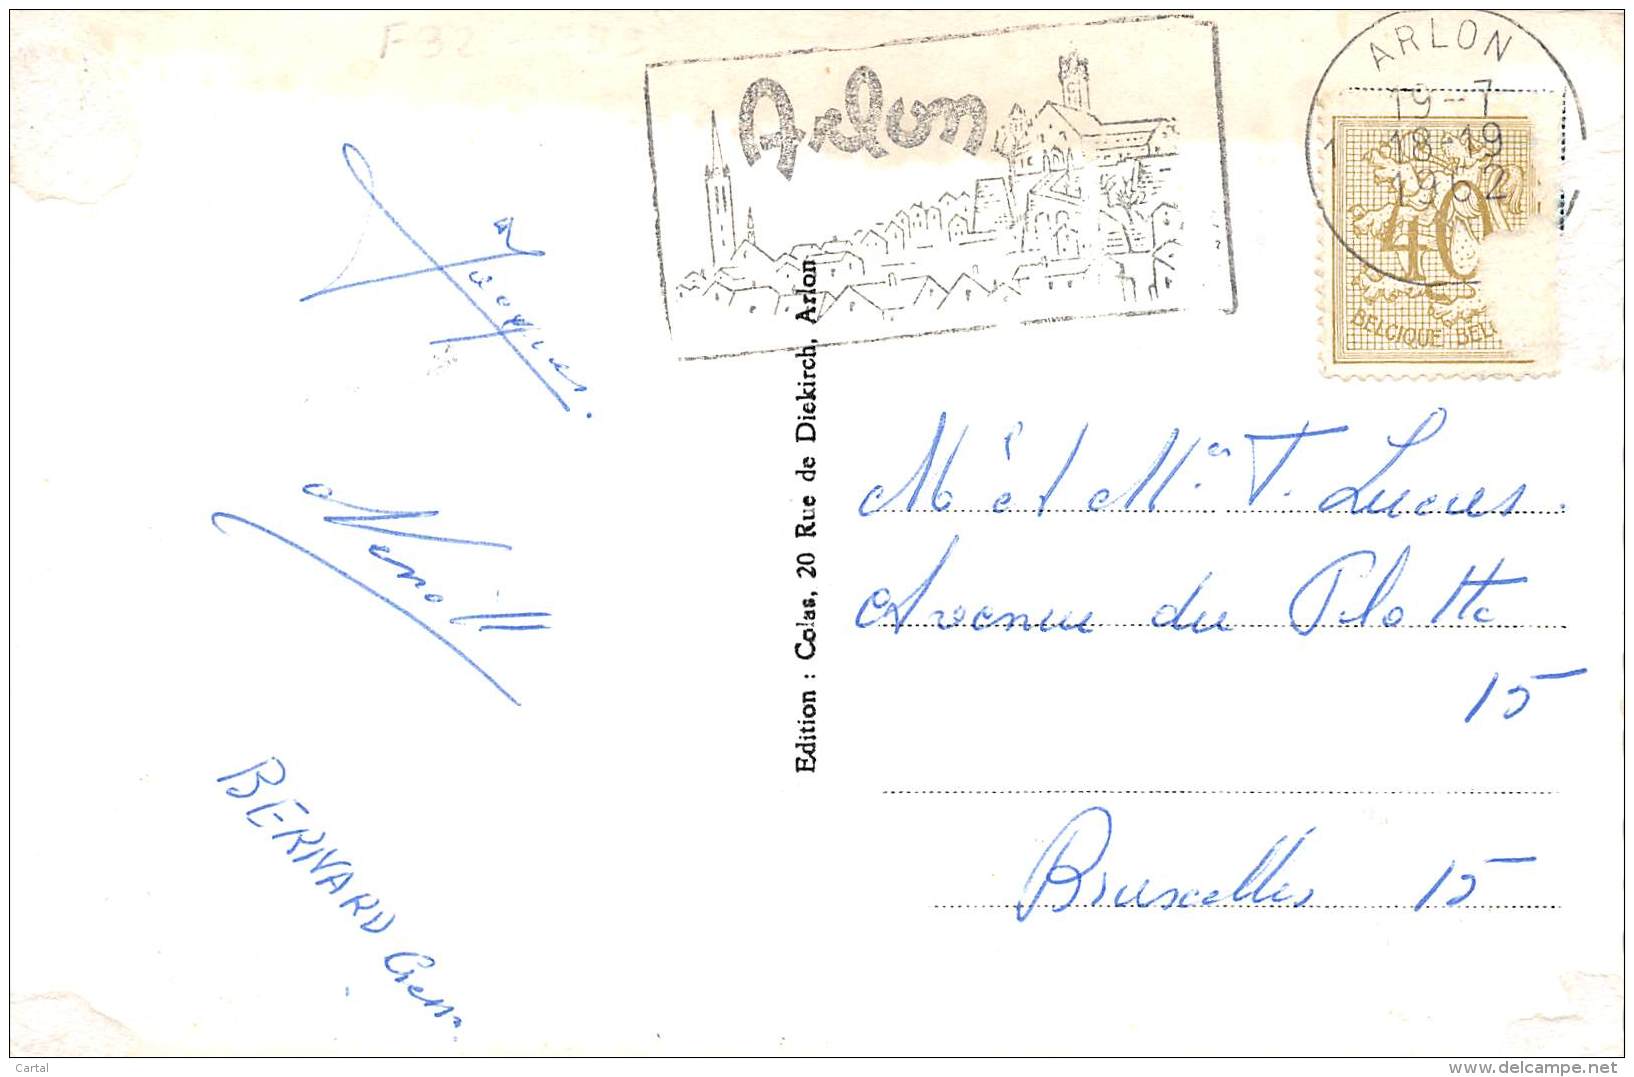 F32
Arlon
ARLON
19-7
18-19
1962
40
BELGIQUE BEL
Jacques.
BERNARD
Edition : Colas, 20 Rue de Diekirch, Arlon
M et M T. Lucus.
Avenue du Plotte
15
Bruxelles 15
Cartal
www.delcampe.net